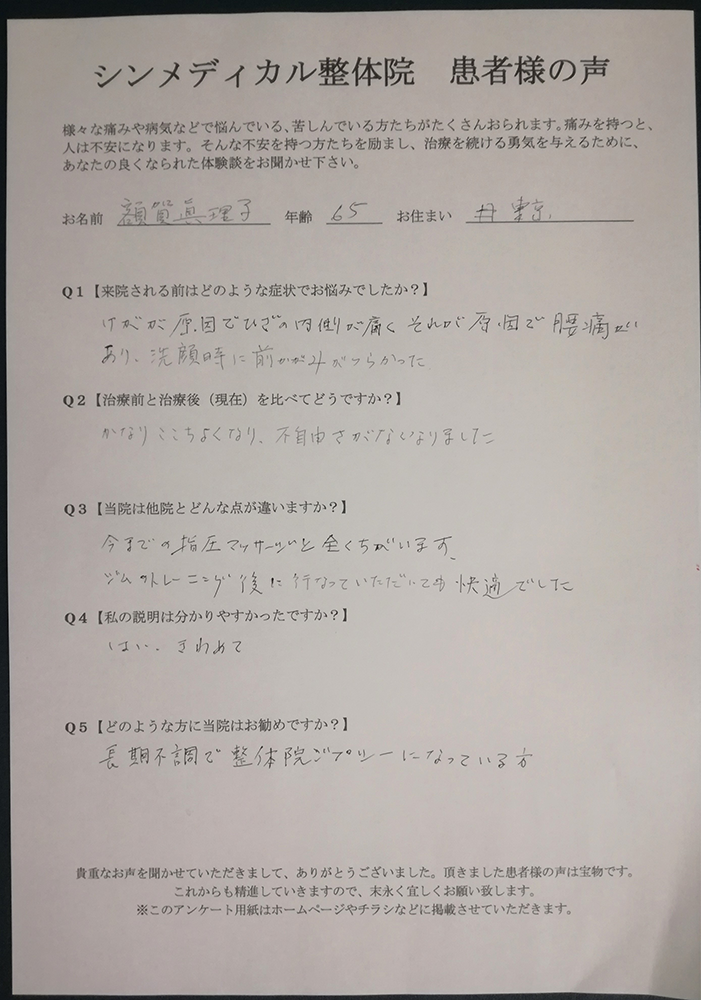 シンメディカル整体院 患者様の声
様々な痛みや病気などで悩んでいる、苦しんでいる方たちがたくさんおられます。痛みを持つと、
人は不安になります。そんな不安を持つ方たちを励まし、治療を続ける勇気を与えるために、
あなたの良くなられた体験談をお聞かせ下さい。
お名前 額賀眞理子 年齢 65 お住まい 東京
Q1【来院される前はどのような症状でお悩みでしたか?】
けがが原因でひざの内側が痛く それが原因で腰痛が
あり、洗顔時に前かがみがつらかった
Q2【治療前と治療後(現在)を比べてどうですか?】
かなりここちよくなり、不自由さがなくなりました
Q3【当院は他院とどんな点が違いますか?】
今までの指圧マッサージと全くちがいます、
ジムのトレーニング後に行なっていただいても快適でした
Q4【私の説明は分かりやすかったですか?】
はい、きわめて
Q5【どのような方に当院はお勧めですか?】
長期不調で整体院ジプシーになっている方
貴重なお声を聞かせていただきまして、ありがとうございました。頂きました患者様の声は宝物です。
これからも精進していきますので、末永く宜しくお願い致します。
※このアンケート用紙はホームページやチラシなどに掲載させていただきます。